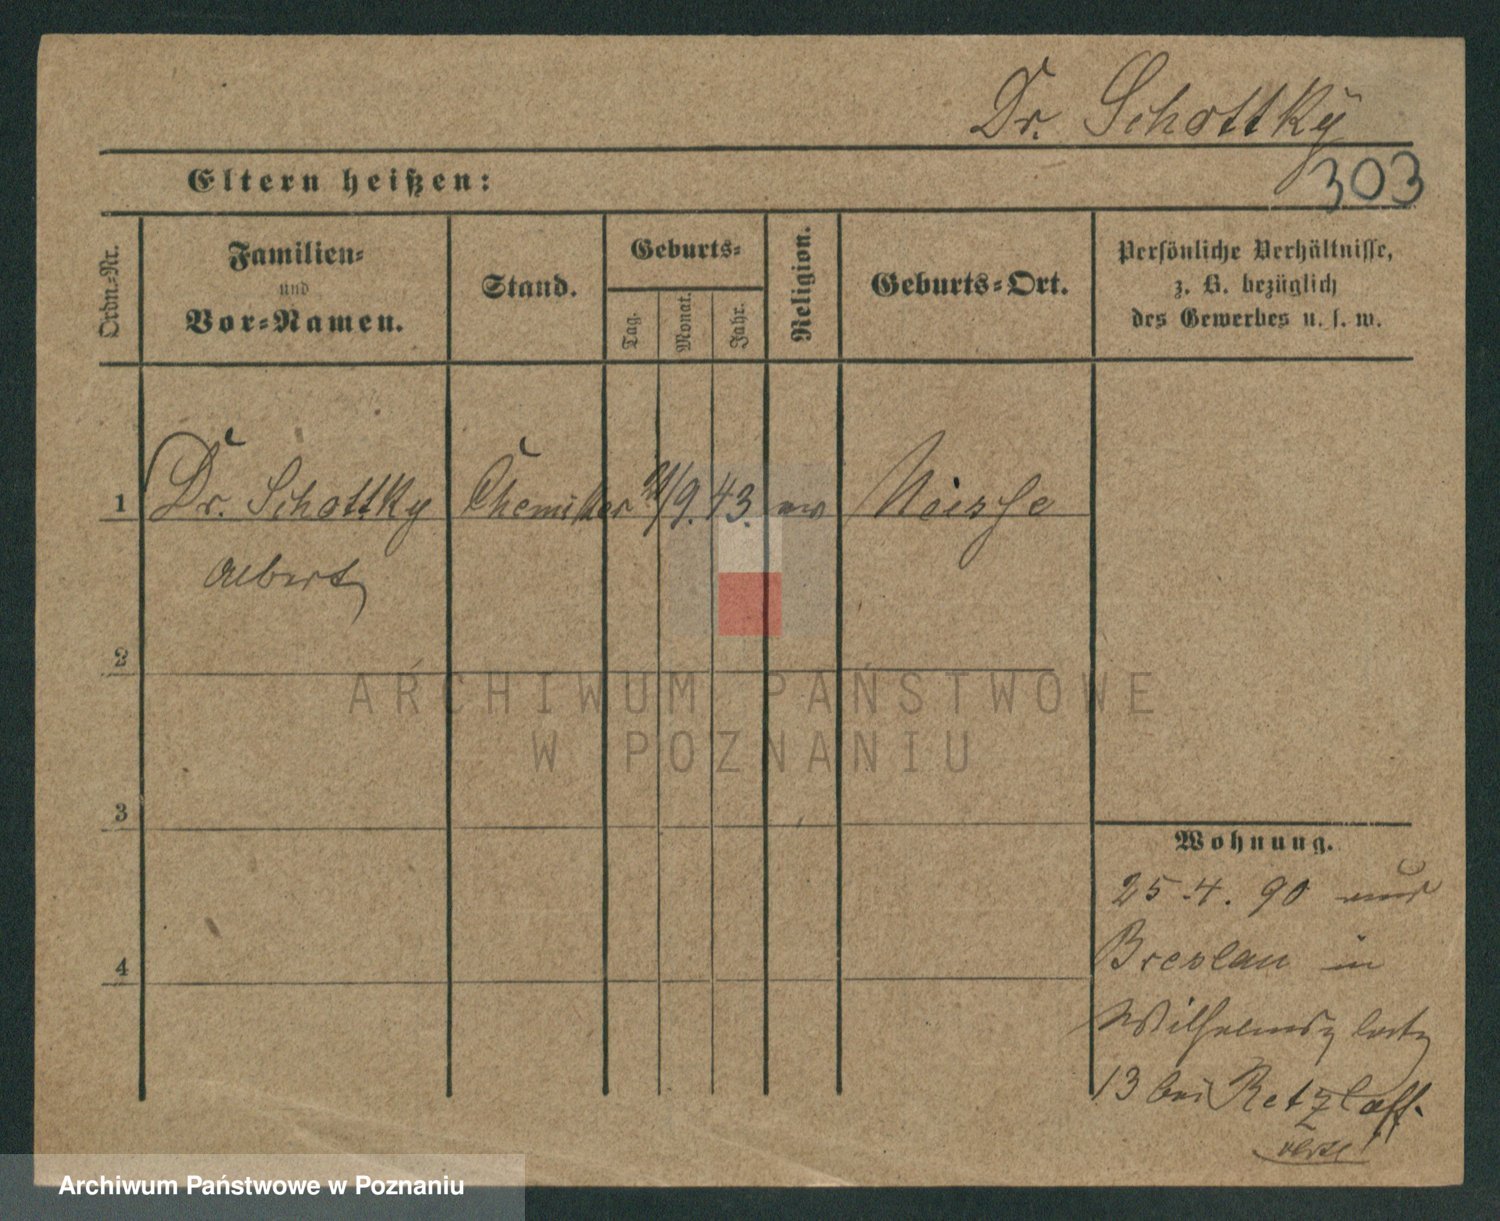 Dr. Schottky
303
Eltern heißen:
Ordn.-Nr.
Familien-
und
Vor-Namen.
Stand.
Geburts-
Tag.
Monat.
Jahr.
Religion.
Geburts-Ort.
Persönliche Verhältnisse,
z. B. bezüglich
des Gewerbes u. s. w.
1 Dr. Schottky Chemiker /9. 43. Neisse
Albert
2
3
4
Wohnung.
25.4.90 aus
Breslau in
Wilhelmsplatz
13 bei Retzlaff.
ARCHIWUM PAŃSTWOWE
W POZNANIU
Archiwum Państwowe w Poznaniu